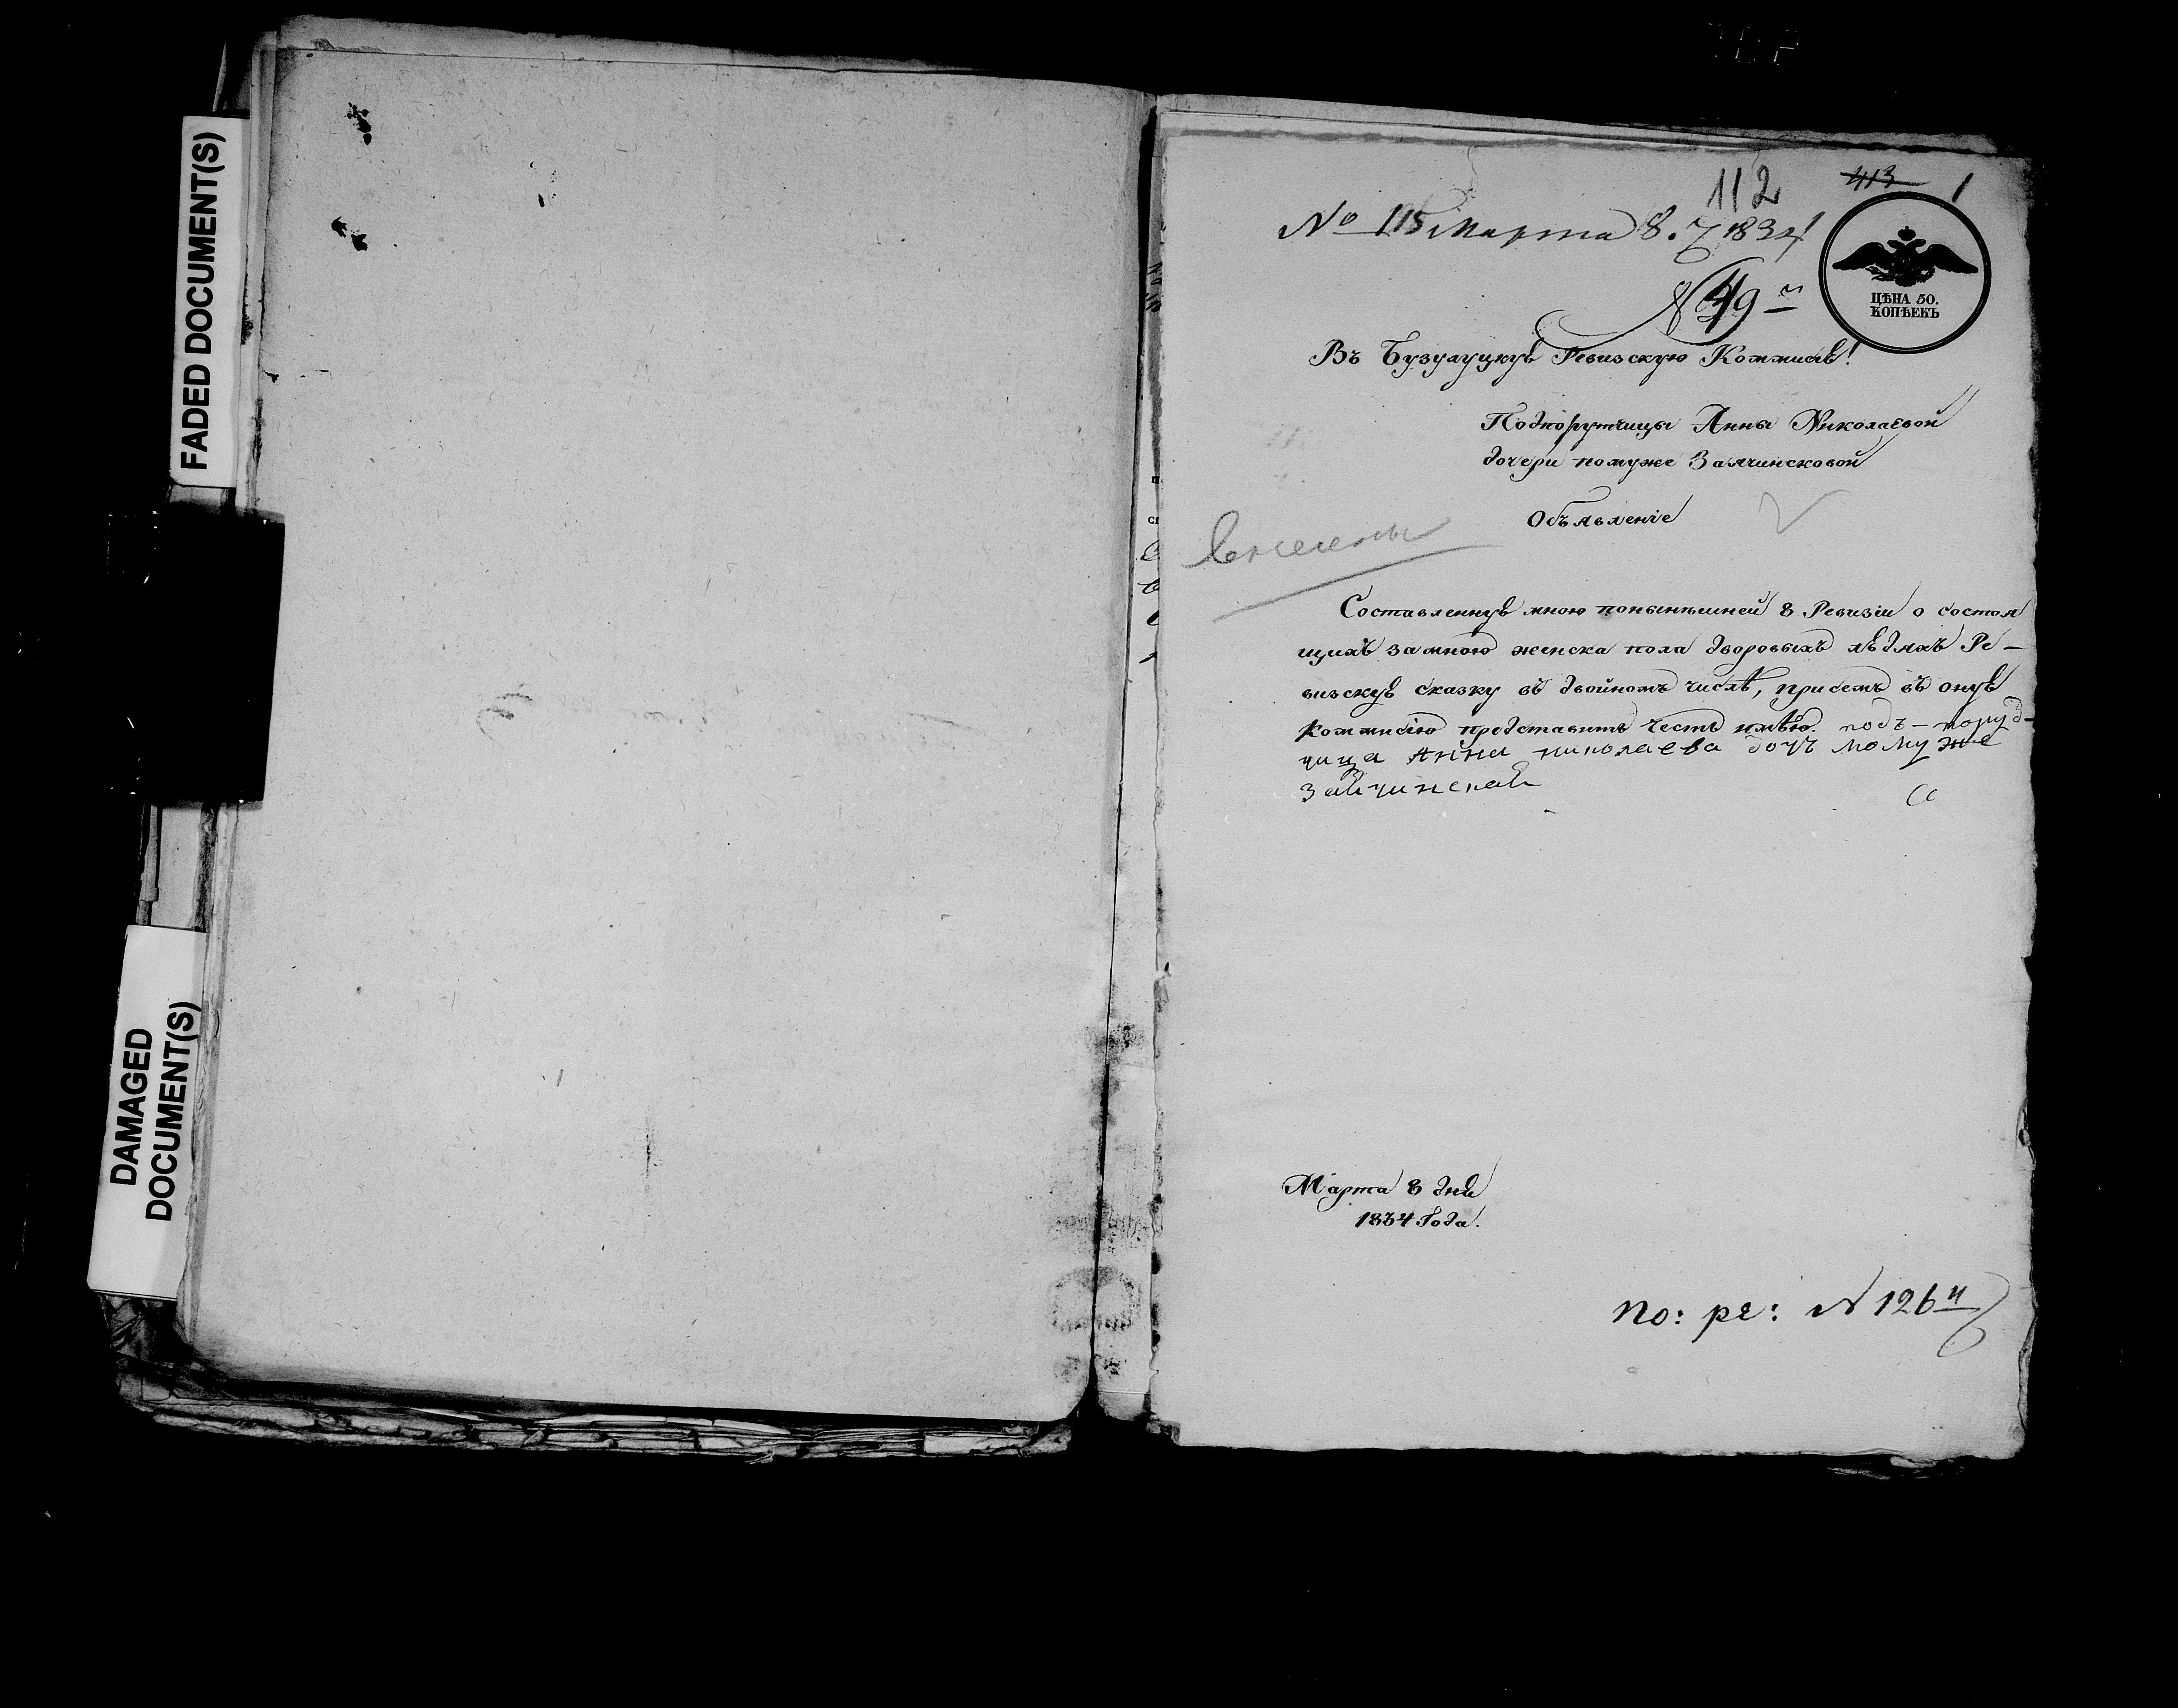 FADED DOCUMENT(S)
DAMAGED
DOCUMENT(S)
112
413
1
№ 115 Марта 8. 1834
№ 49
ЦѢНА 50.
КОПѢЕКЪ
Въ Бузулуцкую Ревизскую Коммисію!
Подпорутчицы Анны Николаевой
дочери помуже Заячинсковой
Объявленіе
Составленную мною понынѣшней 8 Ревизіи о состоя
щихъ замною женска пола дворовыхъ людяхъ Ре-
визскую сказку въ двойномъ числѣ, присемъ въ оную
Коммисію представить честь имѣю. подъ-поруд-
чица Анна николаева дочь помуже
Заячинская
Марта 8 дня
1834 Года.
по: ре: № 126й